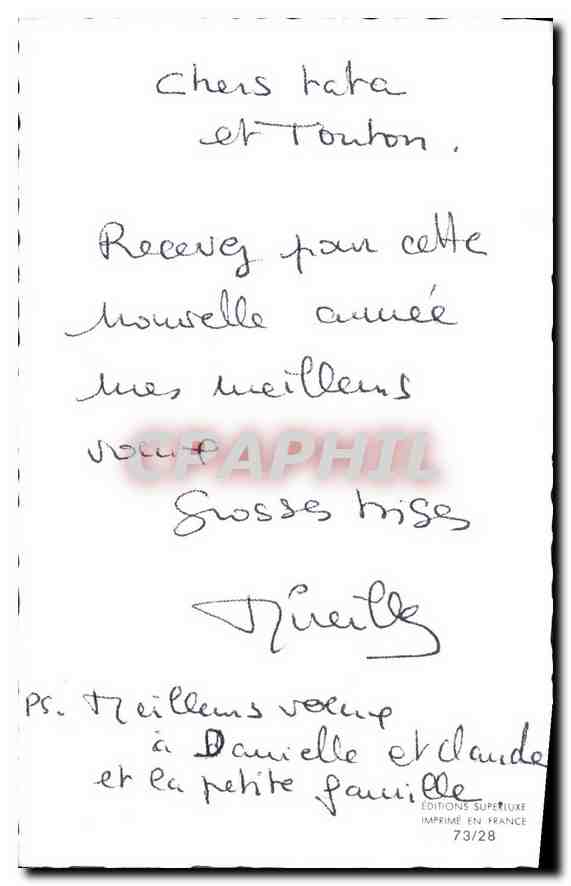 Chers tata
et Tonton.
Recevez pour cette
nouvelle année
mes meilleurs
voeux
CPAPHIL
Grosses bises
Mireille
PS. Meilleurs voeux
à Danielle et Claude
et la petite famille
EDITIONS SUPERLUXE
IMPRIMÉ EN FRANCE
73/28